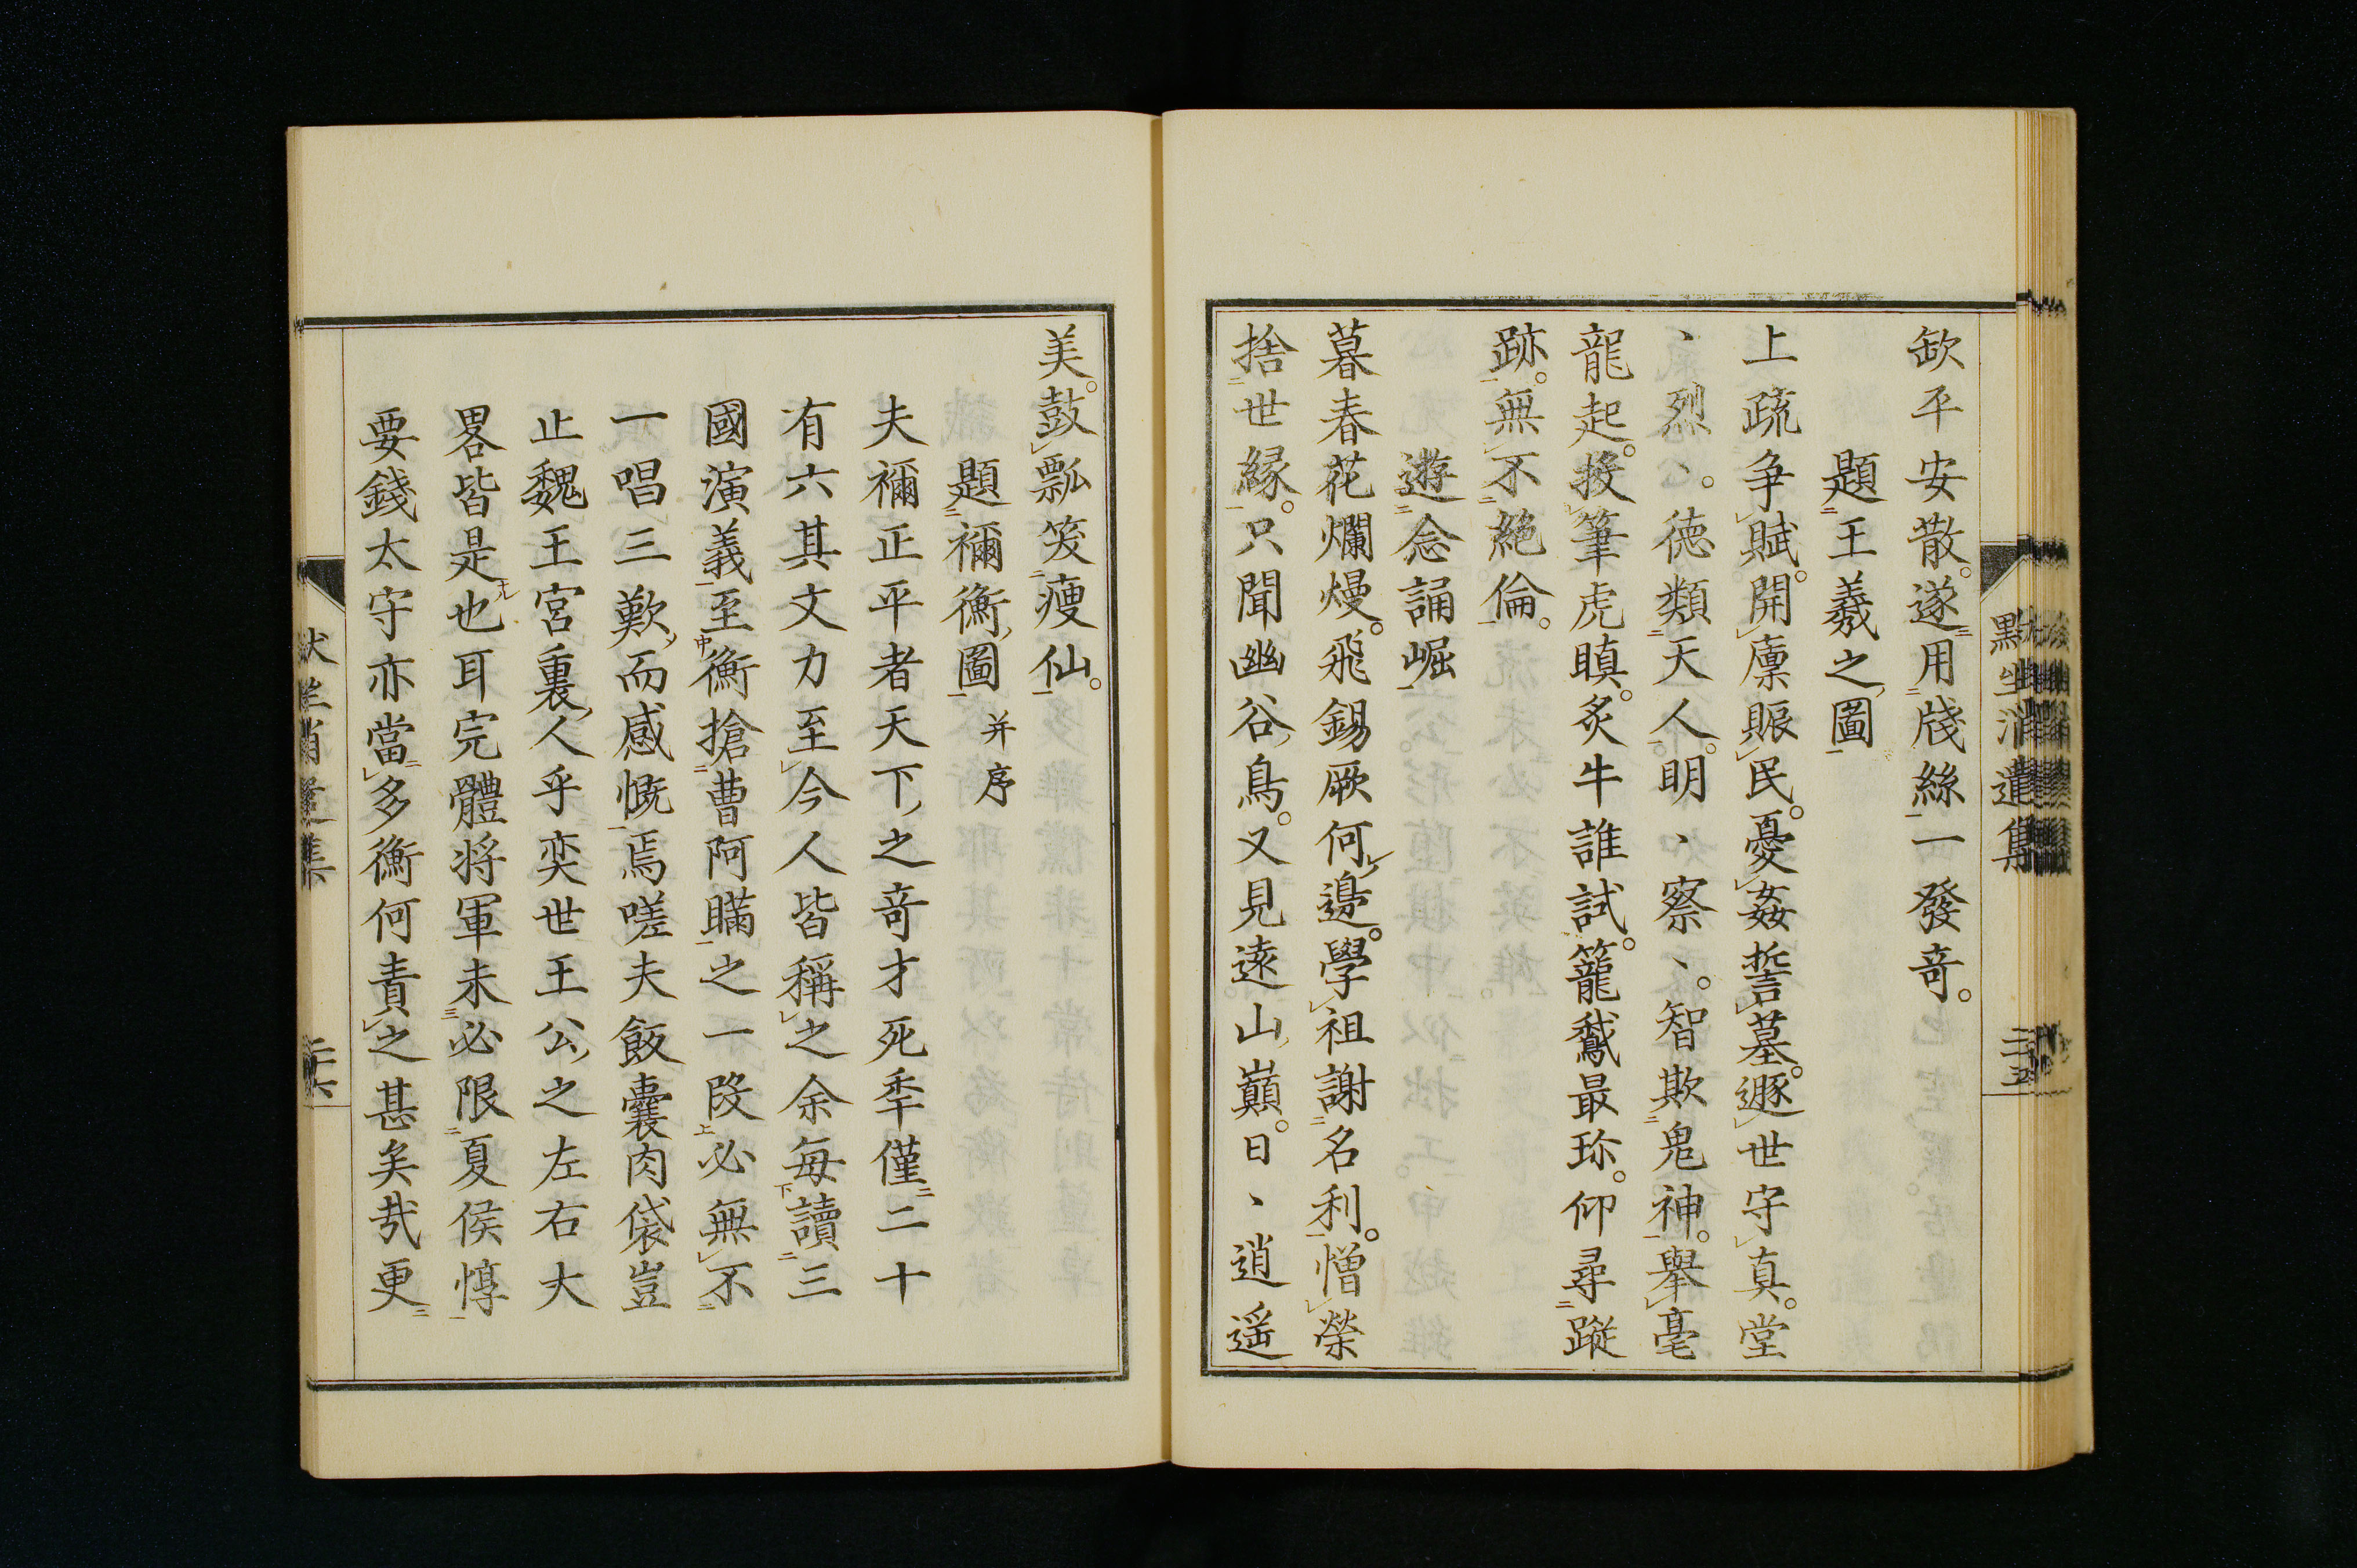 欫平安散。遂用牋絲一發竒。
題王羲之圖
上疏争賦。開廩賑民。憂姦誓墓。遯世守真。堂
、烈、。徳類天人。明、察、。智欺鬼神。舉毫
龍起。投筆虎瞋。炙牛誰試。籠鵞最珎。仰尋蹤
跡。無不絶倫。
遊念誦崛
暮春花爛熳。飛錫厥何邊。學祖謝名利。憎榮
捨世縁。只聞幽谷鳥。又見遠山巓。日、逍遥
點坐消遣集
二十五
美。鼓瓢笑痩仙。
題禰衡圖 并序
夫禰正平者天下之竒才死秊僅二十
有六其文力至今人皆稱之余毎讀三
國演義至衡搶曹阿瞞之一段必無不
一唱三歎而感慨焉嗟夫飯嚢肉袋豈
止魏王宮裏人乎奕世王公之左右大
畧皆是也耳完體将軍未必限夏侯惇
要錢太守亦當多衡何責之甚矣哉更